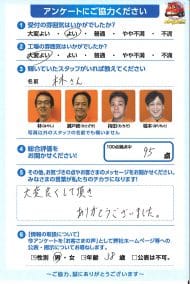 アンケートにご協力ください
1 受付の雰囲気はいかがでしたか?
大変よい・よい・普通・やや不満・不満
2 工場の雰囲気はいかがでしたか?
大変よい・よい・普通・やや不満・不満
3 輝いていたスタッフがいれば教えてください
名前
林さん
写真以外のスタッフの名前でも構いません
4 総合評価を
お聞かせください!
100点満点中
95 点
5 その他、お気づきの点やお客さまのメッセージをお聞かせください。
みなさまの言葉が私たちのチカラになります!
大変良くして頂き
ありがとうございました。
6 【情報の取扱について】
本アンケートを「お客さまの声」として弊社ホームページ等への
公表・掲示についてお尋ねします。
性別 男・女 年齢 38 公表は不可。
～ご協力、誠にありがとうございます～